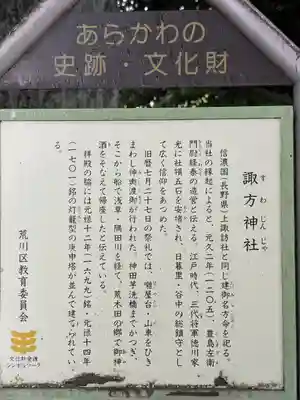 あらかわの
史跡・文化財
諏方神社
すわじんじゃ
信濃国(長野県)上諏訪社と同じ建御名方命を祀る。
当社の縁起によると、元久二年(一二〇五)、豊島左衛
門尉経泰の造営と伝える。江戸時代、三代将軍徳川家
光に社領五石を安堵され、日暮里・谷中の総鎮守とし
て広く信仰をあつめた。
旧暦七月二十七日の祭礼では、囃屋台・山車をひき
まわし神輿渡御が行われた。神田草洗橋までかつぎ、
そこから船で浅草・隅田川を経て、荒木田の郷で御神
酒をそなえて帰座したと伝えている。
拝殿の脇には元禄十二年(一六九九)銘・元禄十四年
(一七〇一)銘の灯籠型の庚申塔が並んで建てられてい
る。
荒川区教育委員会
文化財愛護
シンボルマーク